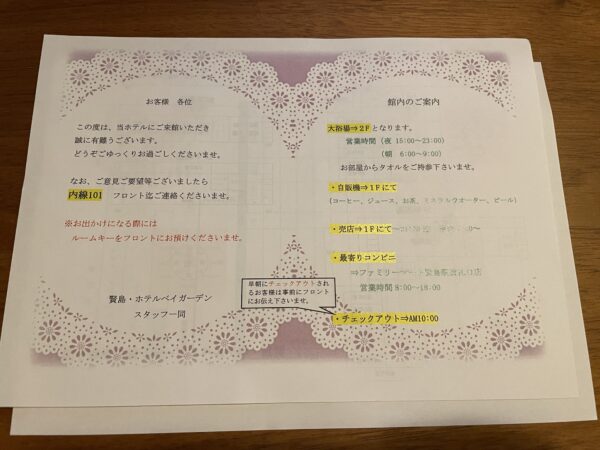 お客様 各位
この度は、当ホテルにご来館いただき
誠に有難うございます。
どうぞごゆっくりお過ごしくださいませ。
なお、ご意見ご要望等ございましたら
内線101 フロント迄ご連絡くださいませ。
※お出かけになる際には
ルームキーをフロントにお預けくださいませ。
賢島・ホテルベイガーデン
スタッフ一同
館内のご案内
大浴場⇒2Fとなります。
営業時間（夜 15:00～23:00）
（朝 6:00～9:00）
お部屋からタオルをご持参下さいませ。
・自販機⇒1Fにて
(コーヒー、ジュース、お茶、ミネラルウオーター、ビール)
・売店⇒1Fにて
・最寄りコンビニ
⇒ファミリーマート賢島駅
営業時間 8:00～18:00
早朝にチェックアウトされ
るお客様は事前にフロント
にお伝え下さいませ。
・チェックアウト⇒AM10:00